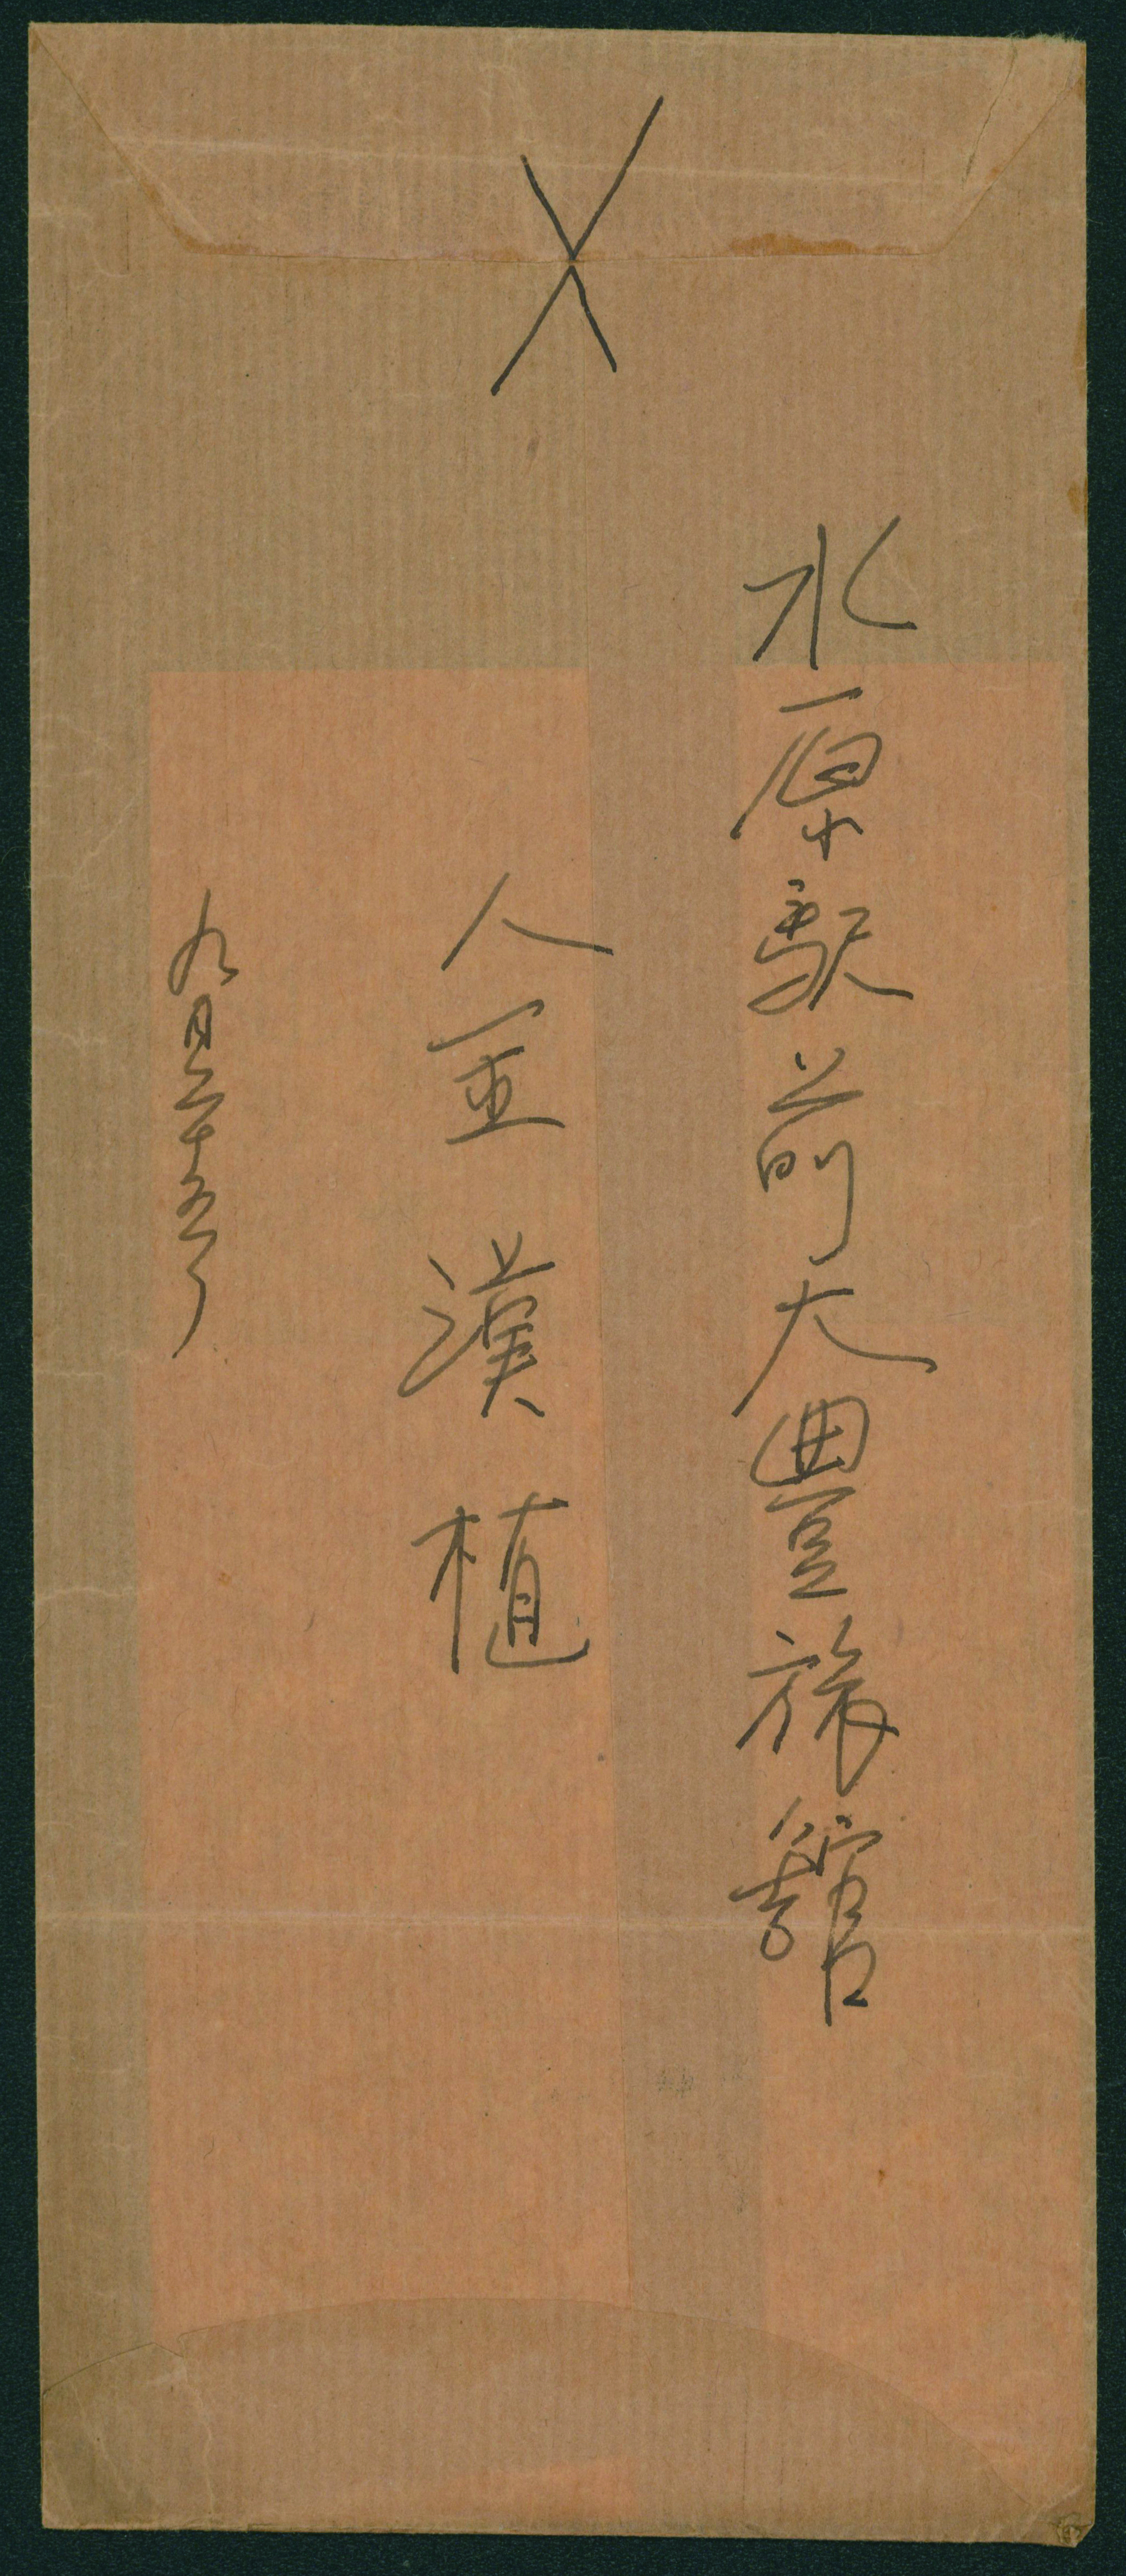 水原駅前大豊旅舘
金漢植
九月二十五日